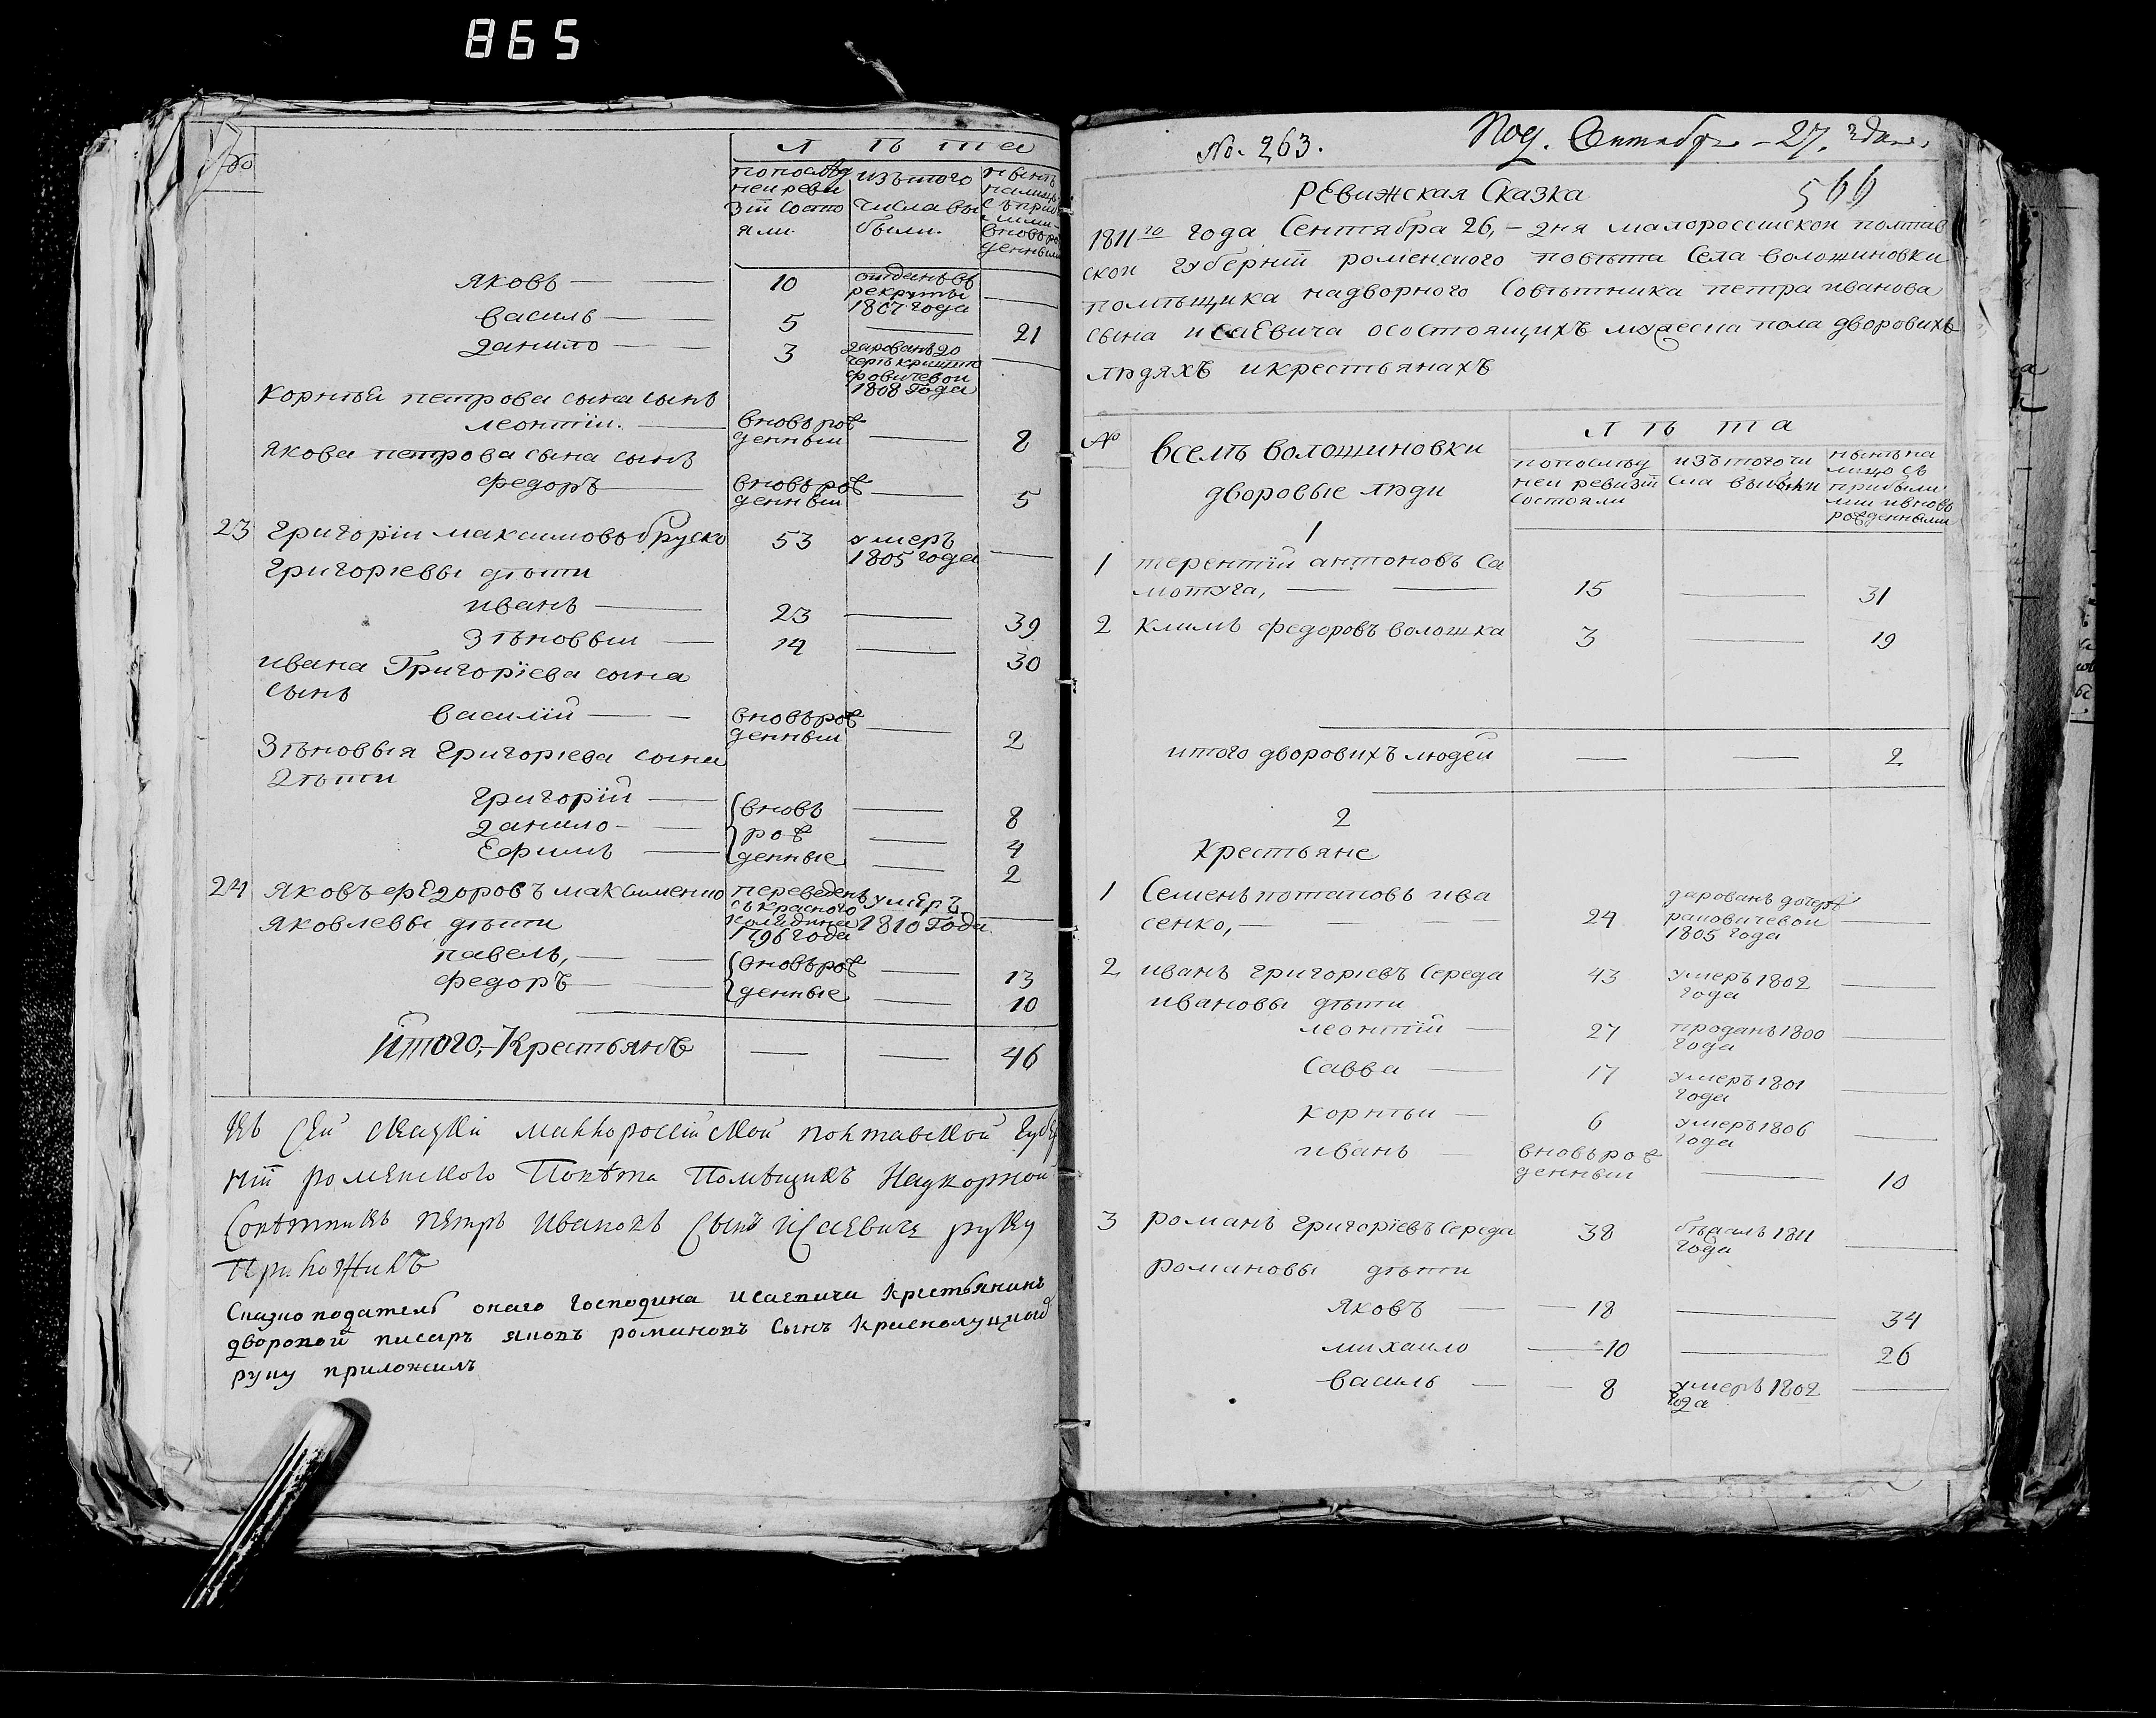 865
№
Лѣта
попослѣд
неи реви
зіи состо
яли.
изътого
числа вы
были.
нынѣ
яковъ — — 10 отданъ въ
рекруты
1807 года —
василь — — 5 — 21
данило — — 3
1808 года —
корнѣя петрова сына сынъ
леонтіи. — вновь рож
денныи — 8
якова петрова сына сынъ
федоръ — вновь рож
денныи — 5
23 григоріи максимовъ бруско 53 умеръ
1805 года —
григоріевы дѣти
иванъ — 23 — 39
зѣновыи — 14 — 30
ивана григоріева сына
сынъ
василіи — — вновърож
денныи — 2
зѣновыя григоріева сына
дѣти
григоріи — вновъ — 8
данило — — рож — 4
ефимъ — денные — 2
24 яковъ федоровъ максименко переведенъ
съ красного
1796 года умеръ
1810 года —
яковлевы дѣти
павелъ, — — вновърож — 13
федоръ — — денные — 10
итого, — крестьянъ — — 46
Къ сей сказки малороссійской полтавской губѣр
ніи роменского повѣта помѣщикъ надворной
совѣтникъ петръ ивановъ сынъ исаевичъ руку
приложилъ
Сказко податель онаго господина исаевича крестьянинъ
дворовой писаръ яковъ романовъ сынъ
руку приложилъ
№. 263. Под. Сентября - 27. дня.
566
Ревижская Сказка
1811го года Сентября 26, - дня малороссіискои полтав
скои губерніи роменского повѣта села волошиновки
помѣщика надворного совѣтника петра иванова
сына исаевича осостоящихъ мужеска пола дворовихъ
людяхъ икрестьянахъ
№
вселѣ волошиновки
дворовые люди
Лѣта
попослѣд
неи ревизіи
состояли
изътогочи
сла выбыли
нынѣ на
лицо съ
прибыли
ми ивновь
рожденными
1
1 терентіи антоновъ са
мотуга, — — 15 — 31
2 климъ федоровъ волошка 3 — 19
итого дворовихъ людеи — — 2
2
крестьяне
1 семенъ потаповъ ива
сенко, — — 24 дарованъ дочерѣ
1805 года —
2 иванъ григоріевъ середа 43 умеръ 1802
года —
ивановы дѣти
леонтіи — 27 проданъ 1800
года —
савва — 17 умеръ 1801
года —
корнѣи — 6 умеръ 1806
года —
иванъ — вновьрож
денныи — 10
3 романъ григоріевъ середа 38 бѣжалъ 1811
года —
романовы дѣти
яковъ — — 18 — 34
михаило — 10 — 26
василь — — 8 умеръ 1802
года —